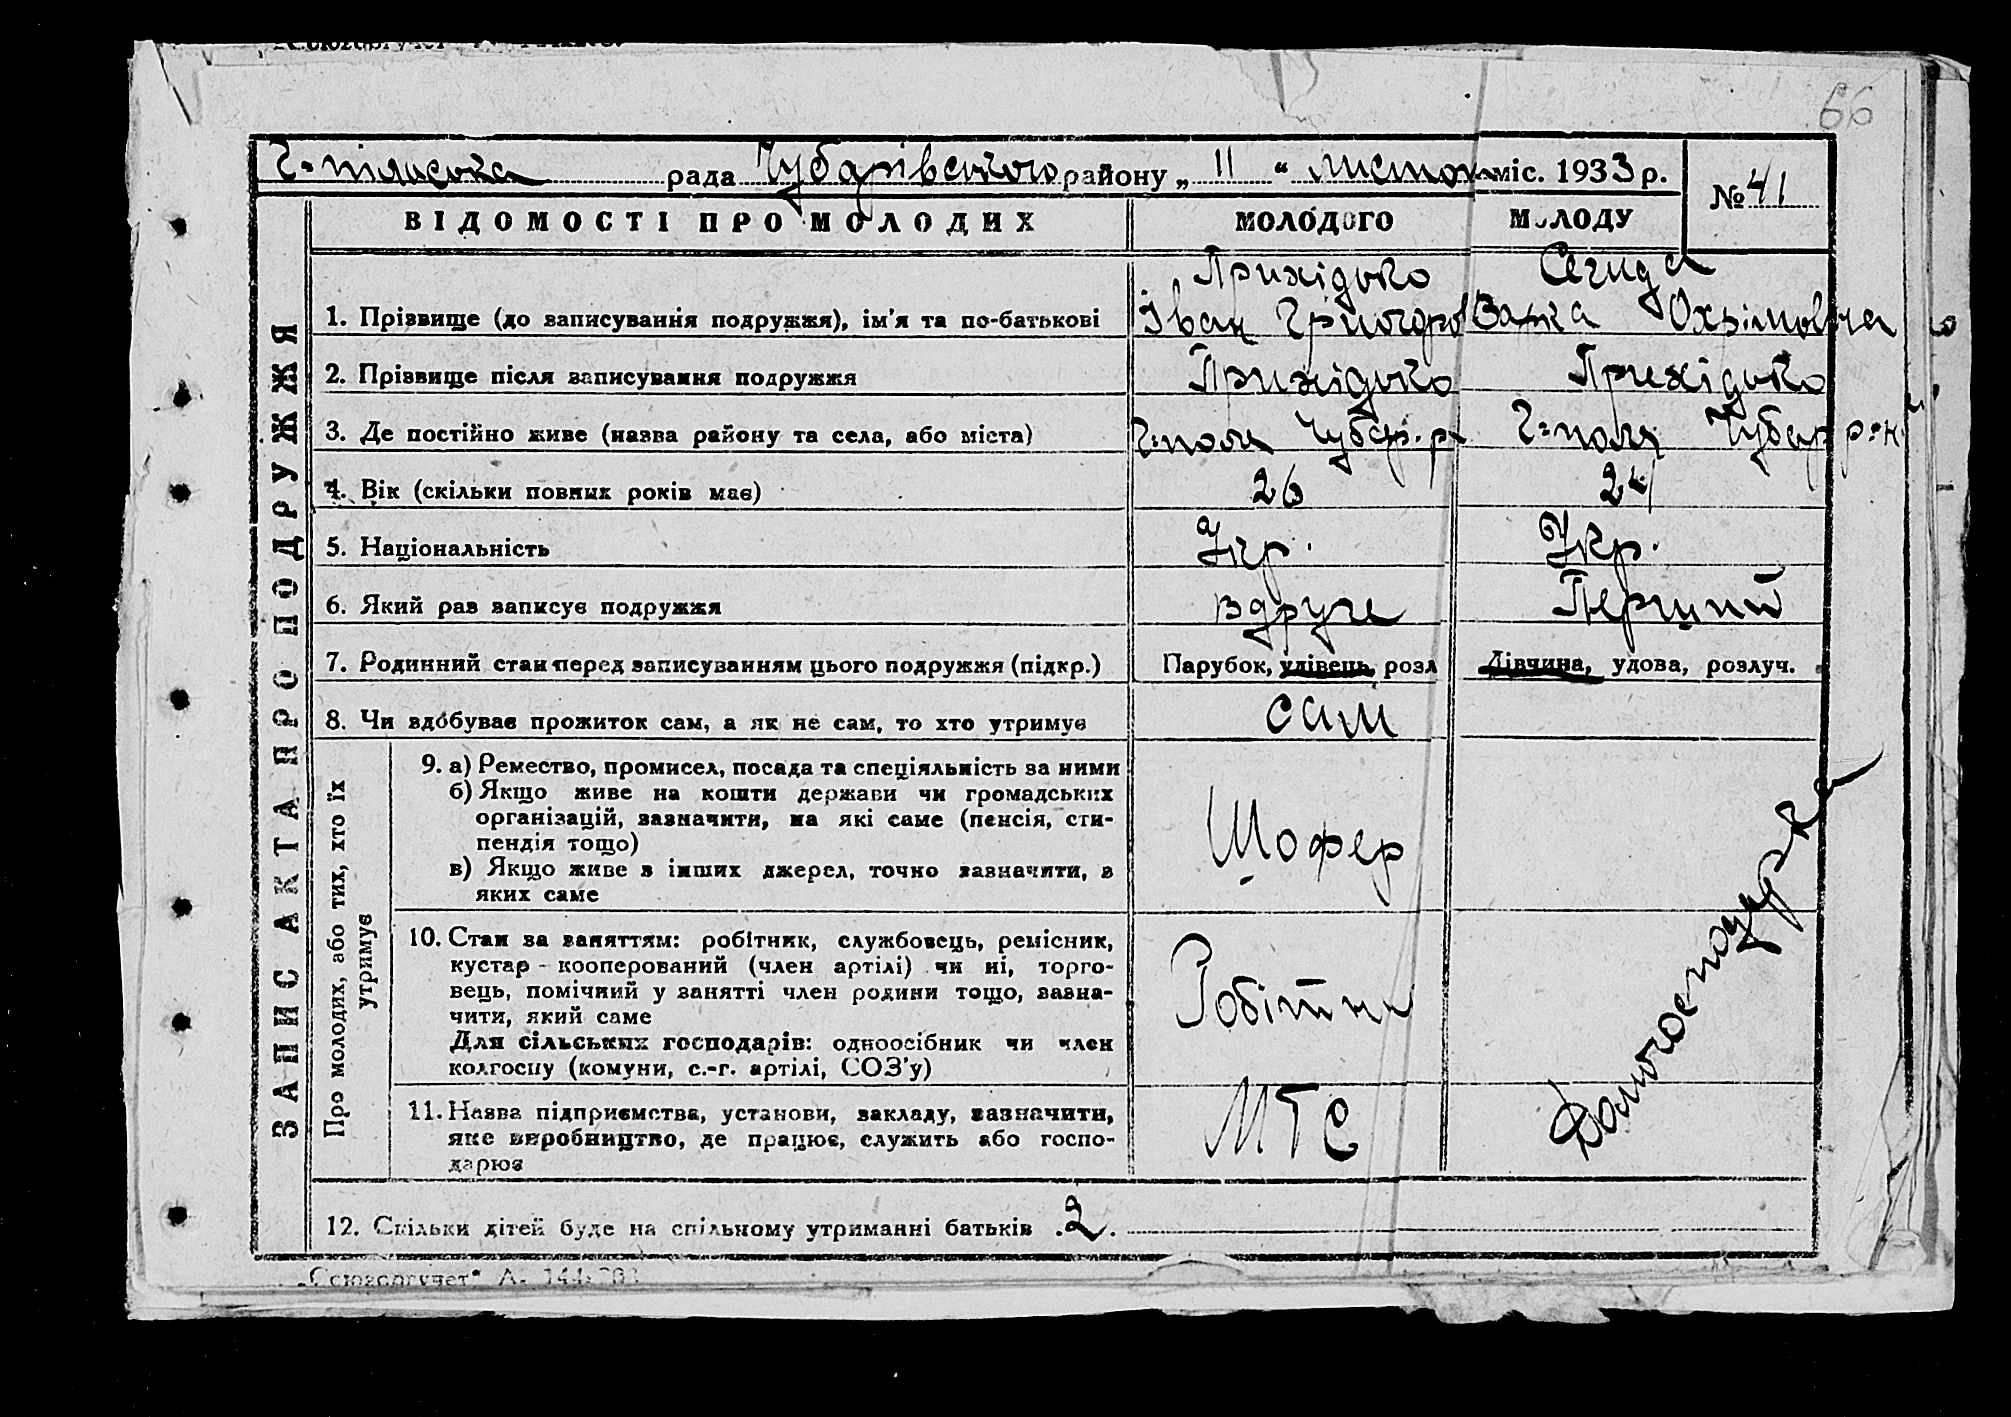 66
Г-пільська рада Чубарівського району „ 11 “ листоп міс. 1933 р.
№ 41
ЗАПИС АКТА ПРО ПОДРУЖЖЯ
ВІДОМОСТІ ПРО МОЛОДИХ МОЛОДОГО МОЛОДУ
Прихідько Сегида
1. Прізвище (до записування подружжя), ім'я та по-батькові Іван Григоров Охвімовна
2. Прізвище після записування подружжя Прихідько Прихідько
3. Де постійно живе (назва району та села, або міста) Г=поле Чубар. р. Г=поля Чубар р=н
4. Вік (скільки повних років має) 26 24
5. Національність Укр. Укр.
6. Який раз записує подружжя вдруге Перший
7. Родинний стан перед записуванням цього подружжя (підкр.) Парубок, удівець, розл Дівчина, удова, розлуч.
8. Чи здобуває прожиток сам, а як не сам, то хто утримує сам
Про молодих, або тих, хто їх
утримує
9. а) Ремество, промисел, посада та спеціяльність за ними
б) Якщо живе на кошти держави чи громадських
організацій, зазначити, на які саме (пенсія, сти-
пендія тощо)
в) Якщо живе з інших джерел, точно зазначити, з
яких саме
Шофер
10. Стан за заняттям: робітник, службовець, ремісник,
кустар - кооперований (член артілі) чи ні, торго-
вець, помічний у занятті член родини тощо, зазна-
чити, який саме
Для сільських господарів: одноосібник чи член
колгоспу (комуни, с.-г. артілі, СОЗ'у)
Робітни
11. Назва підприємства, установи, закладу, зазначити,
яке виробництво, де працює, служить або госпо-
дарює
МТС
Домогосподарка
12. Скільки дітей буде на спільному утриманні батьків . 2 .
„Союзоргучет“